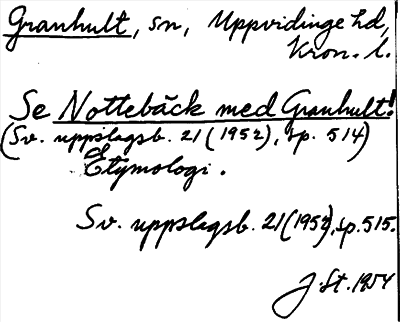 Granhult, sn, Uppvidinge hd,
Kron. l.
Se Nottebäck med Granhult!
(Sv. uppslagsb. 21 (1952), sp. 514)
Etymologi.
Sv. uppslagsb. 21 (1952), sp. 515.
J. St. 1954